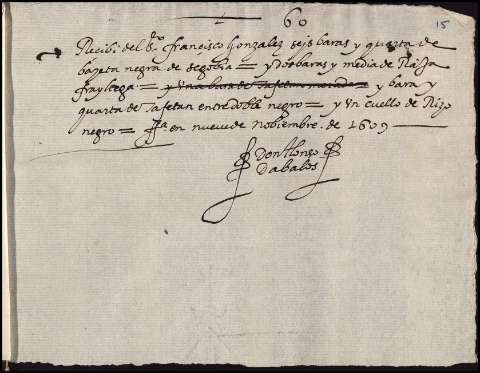 60
15
Recibi del sr francisco Gonzalez seis baras y quarta de
bayeta negra de segobia = y dos baras y media de Raxa
fraylega = y una bara de tafetan morado = y bara y
quarta de tafetan entredoble negro = y Un cuello de Rizo
negro = fa en nueve de nobiembre. de 1609
Don Alonso
Dabalos